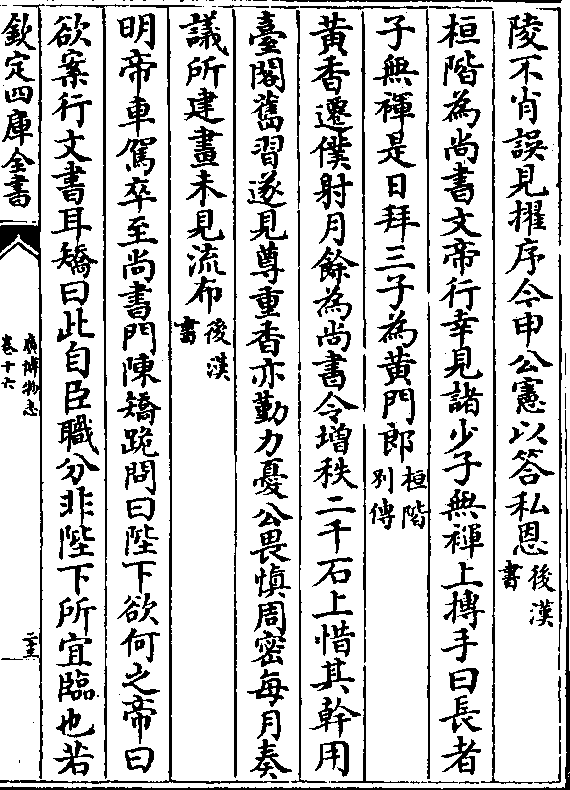 陵不肖誤見擢序今申公憲以答私恩後漢書
桓階為尚書文帝行幸見諸少子無褌上搏手曰長者
子無褌是日拜三子為黃門郎桓階別傳
黃香遷僕射月餘為尚書令增秩二千石上惜其幹用
臺閣舊習遂見尊重香亦勤力憂公畏慎周密每月奏
議所建畫未見流布後漢書
明帝車駕卒至尚書門陳矯跪問曰陛下欲何之帝曰
欲案行文書耳矯曰此自臣職分非陛下所宜臨也若
欽定四庫全書
廣博物志
卷十六